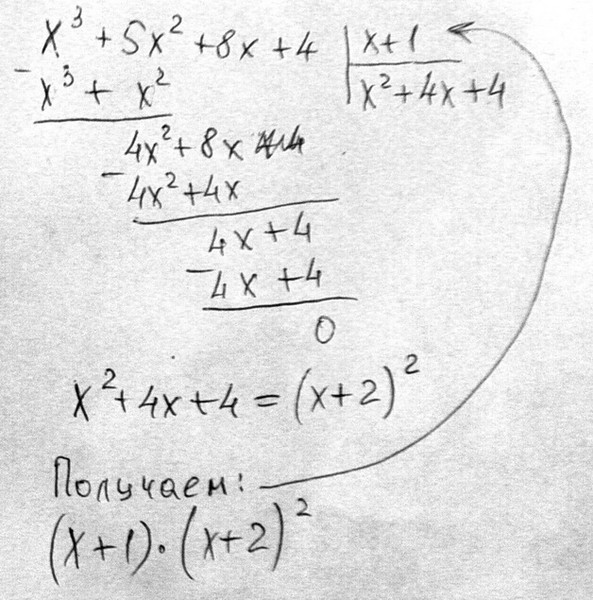 x³ + 5x² + 8x + 4 | x+1
− x³ + x² | x² + 4x + 4
4x² + 8x
− 4x² + 4x
4x + 4
− 4x + 4
0
x² + 4x + 4 = (x+2)²
Получаем:
(x+1)·(x+2)²